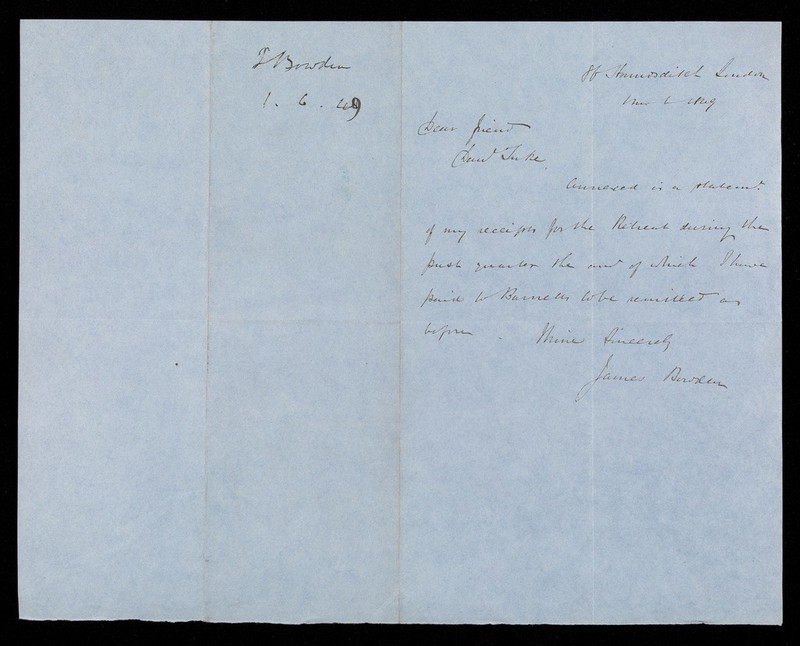 J Bowden
1. 6. 49
86 Houndsditch London
1 mo 6 1849
Dear friend
Saml Tuke
Annexed is a statemt
of my receipts for the Retreat during the
past quarter the amt of which I have
paid to Barnetts to be remitted as
before. Thine Sincerely
James Bowden